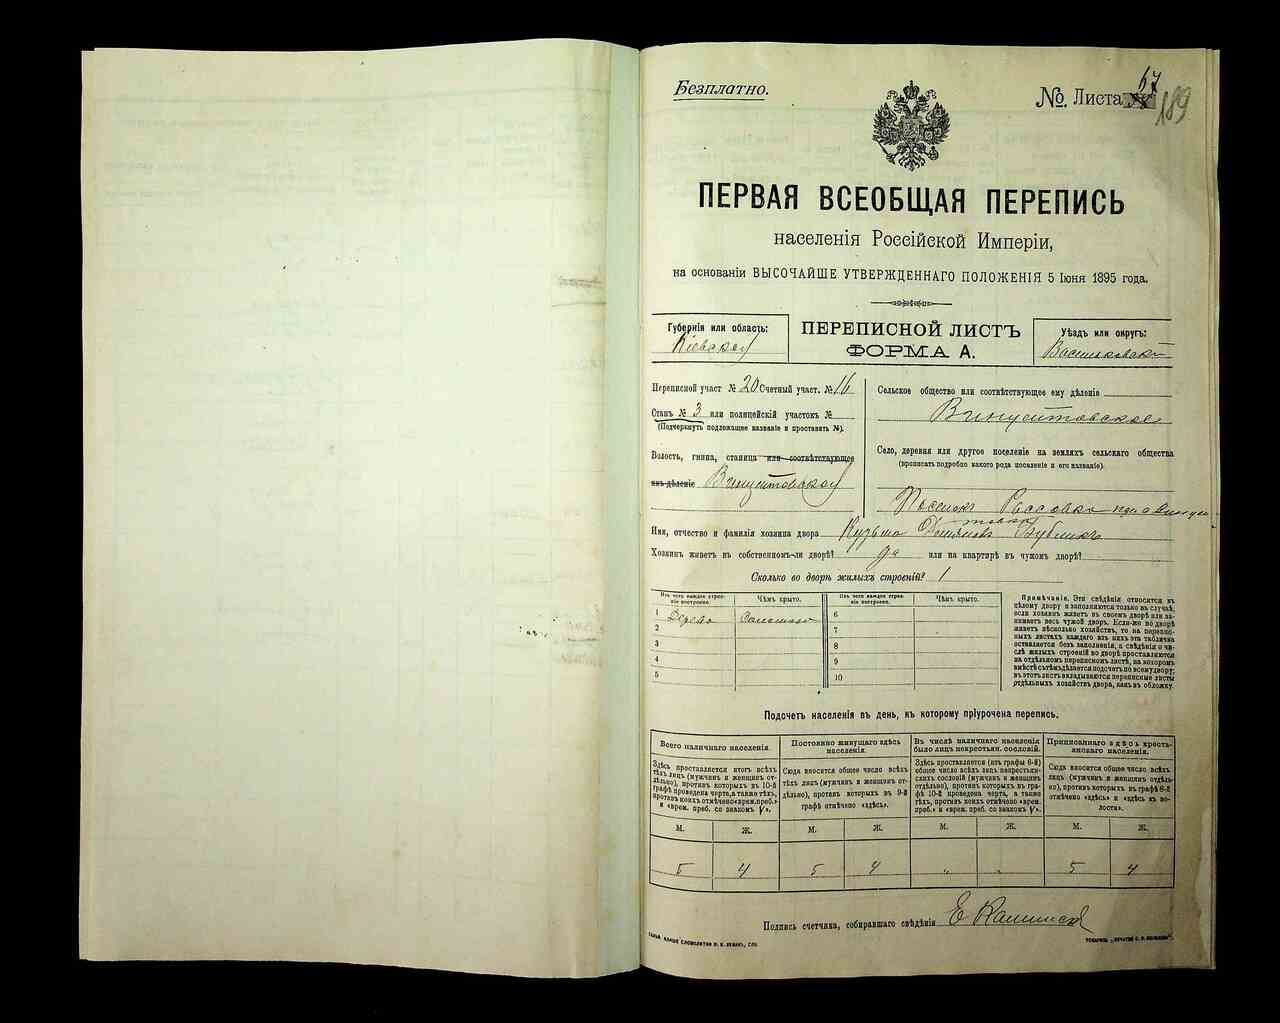 Безплатно.
№ Листа 67
189
ПЕРВАЯ ВСЕОБЩАЯ ПЕРЕПИСЬ
населенія Россійской Имперіи,
на основаніи ВЫСОЧАЙШЕ УТВЕРЖДЕННАГО ПОЛОЖЕНІЯ 5 Іюня 1895 года.
Губернія или область:
Кіевская
ПЕРЕПИСНОЙ ЛИСТЪ
ФОРМА А.
Уѣздъ или округъ:
Васильковскій
Переписной участ № 20 Счетный участ. № 16
Станъ № 3 или полицейскій участокъ №
(Подчеркнуть подлежащее названіе и проставить №).
Волость, гмина, станица или соотвѣтствующее
имъ дѣленіе
Сельское общество или соотвѣтствующее ему дѣленіе
Село, деревая или другое поселеніе на земляхъ сельскаго общества
(прописать подробно какого рода поселеніе и его названіе).
Имя, отчество и фамилія хозяина двора Кузьма
Хозяинъ живетъ въ собственномъ-ли дворѣ? да или на квартирѣ въ чужомъ дворѣ?
Сколько во дворѣ жилыхъ строеній? 1
Изъ чего каждое строеніе построено.
Чѣмъ крыто.
Изъ чего каждое строеніе построено.
Чѣмъ крыто.
1 Дерево Соломою 6
2 7
3 8
4 9
5 10
Примѣчаніе. Эти свѣдѣнія относятся къ
цѣлому двору и заполняются только въ случаѣ,
если хозяинъ живетъ въ своемъ дворѣ или за-
нимаетъ весь чужой дворъ. Если-же во дворѣ
живетъ нѣсколько хозяйствъ, то на перепис-
ныхъ листахъ каждаго изъ нихъ эта табличка
оставляется безъ заполненія, а свѣдѣнія о чи-
слѣ жилыхъ строеній во дворѣ проставляются
на отдѣльномъ переписномъ листѣ, на которомъ
вмѣстѣ съ тѣмъ дѣлается подсчетъ по всему двору;
въ этотъ листъ вкладываются переписные листы
отдѣльныхъ хозяйствъ двора, какъ въ обложку.
Подсчетъ населенія въ день, къ которому пріурочена перепись.
Всего наличнаго населенія.
Постоянно живущаго здѣсь
населенія.
Въ числѣ наличнаго населенія
было лицъ некрестьян. сословій.
Приписаннаго здѣсь кресть-
янскаго населенія.
Здѣсь проставляется итогъ всѣхъ
тѣхъ лицъ (мужчинъ и женщинъ от-
дѣльно), противъ которыхъ въ 10-й
графѣ проведена черта, а также тѣхъ,
противъ коихъ отмѣчено «врем. преб.»
и «врем. преб. со знакомъ V».
Сюда вносится общее число всѣхъ
тѣхъ лицъ (мужчинъ и женщинъ от-
дѣльно), противъ которыхъ въ 9-й
графѣ отмѣчено «здѣсь».
Здѣсь проставляется (изъ графы 6-й)
общее число всѣхъ лицъ некрестьян-
скихъ сословій (мужчинъ и женщинъ
отдѣльно), противъ которыхъ въ гра-
фѣ 10-й проведена черта, а также
тѣхъ, противъ коихъ отмѣчено «врем.
преб.» и «врем. преб. со знакомъ V».
Сюда вносится общее число всѣхъ
лицъ (мужчинъ и женщинъ отдѣль-
но), противъ которыхъ въ графѣ 8-й
отмѣчено «здѣсь» и «здѣсь къ во-
лости».
М. Ж. М. Ж. М. Ж. М. Ж.
5 4 5 4 „ „ 5 4
Подпись счетчика, собиравшаго свѣдѣнія